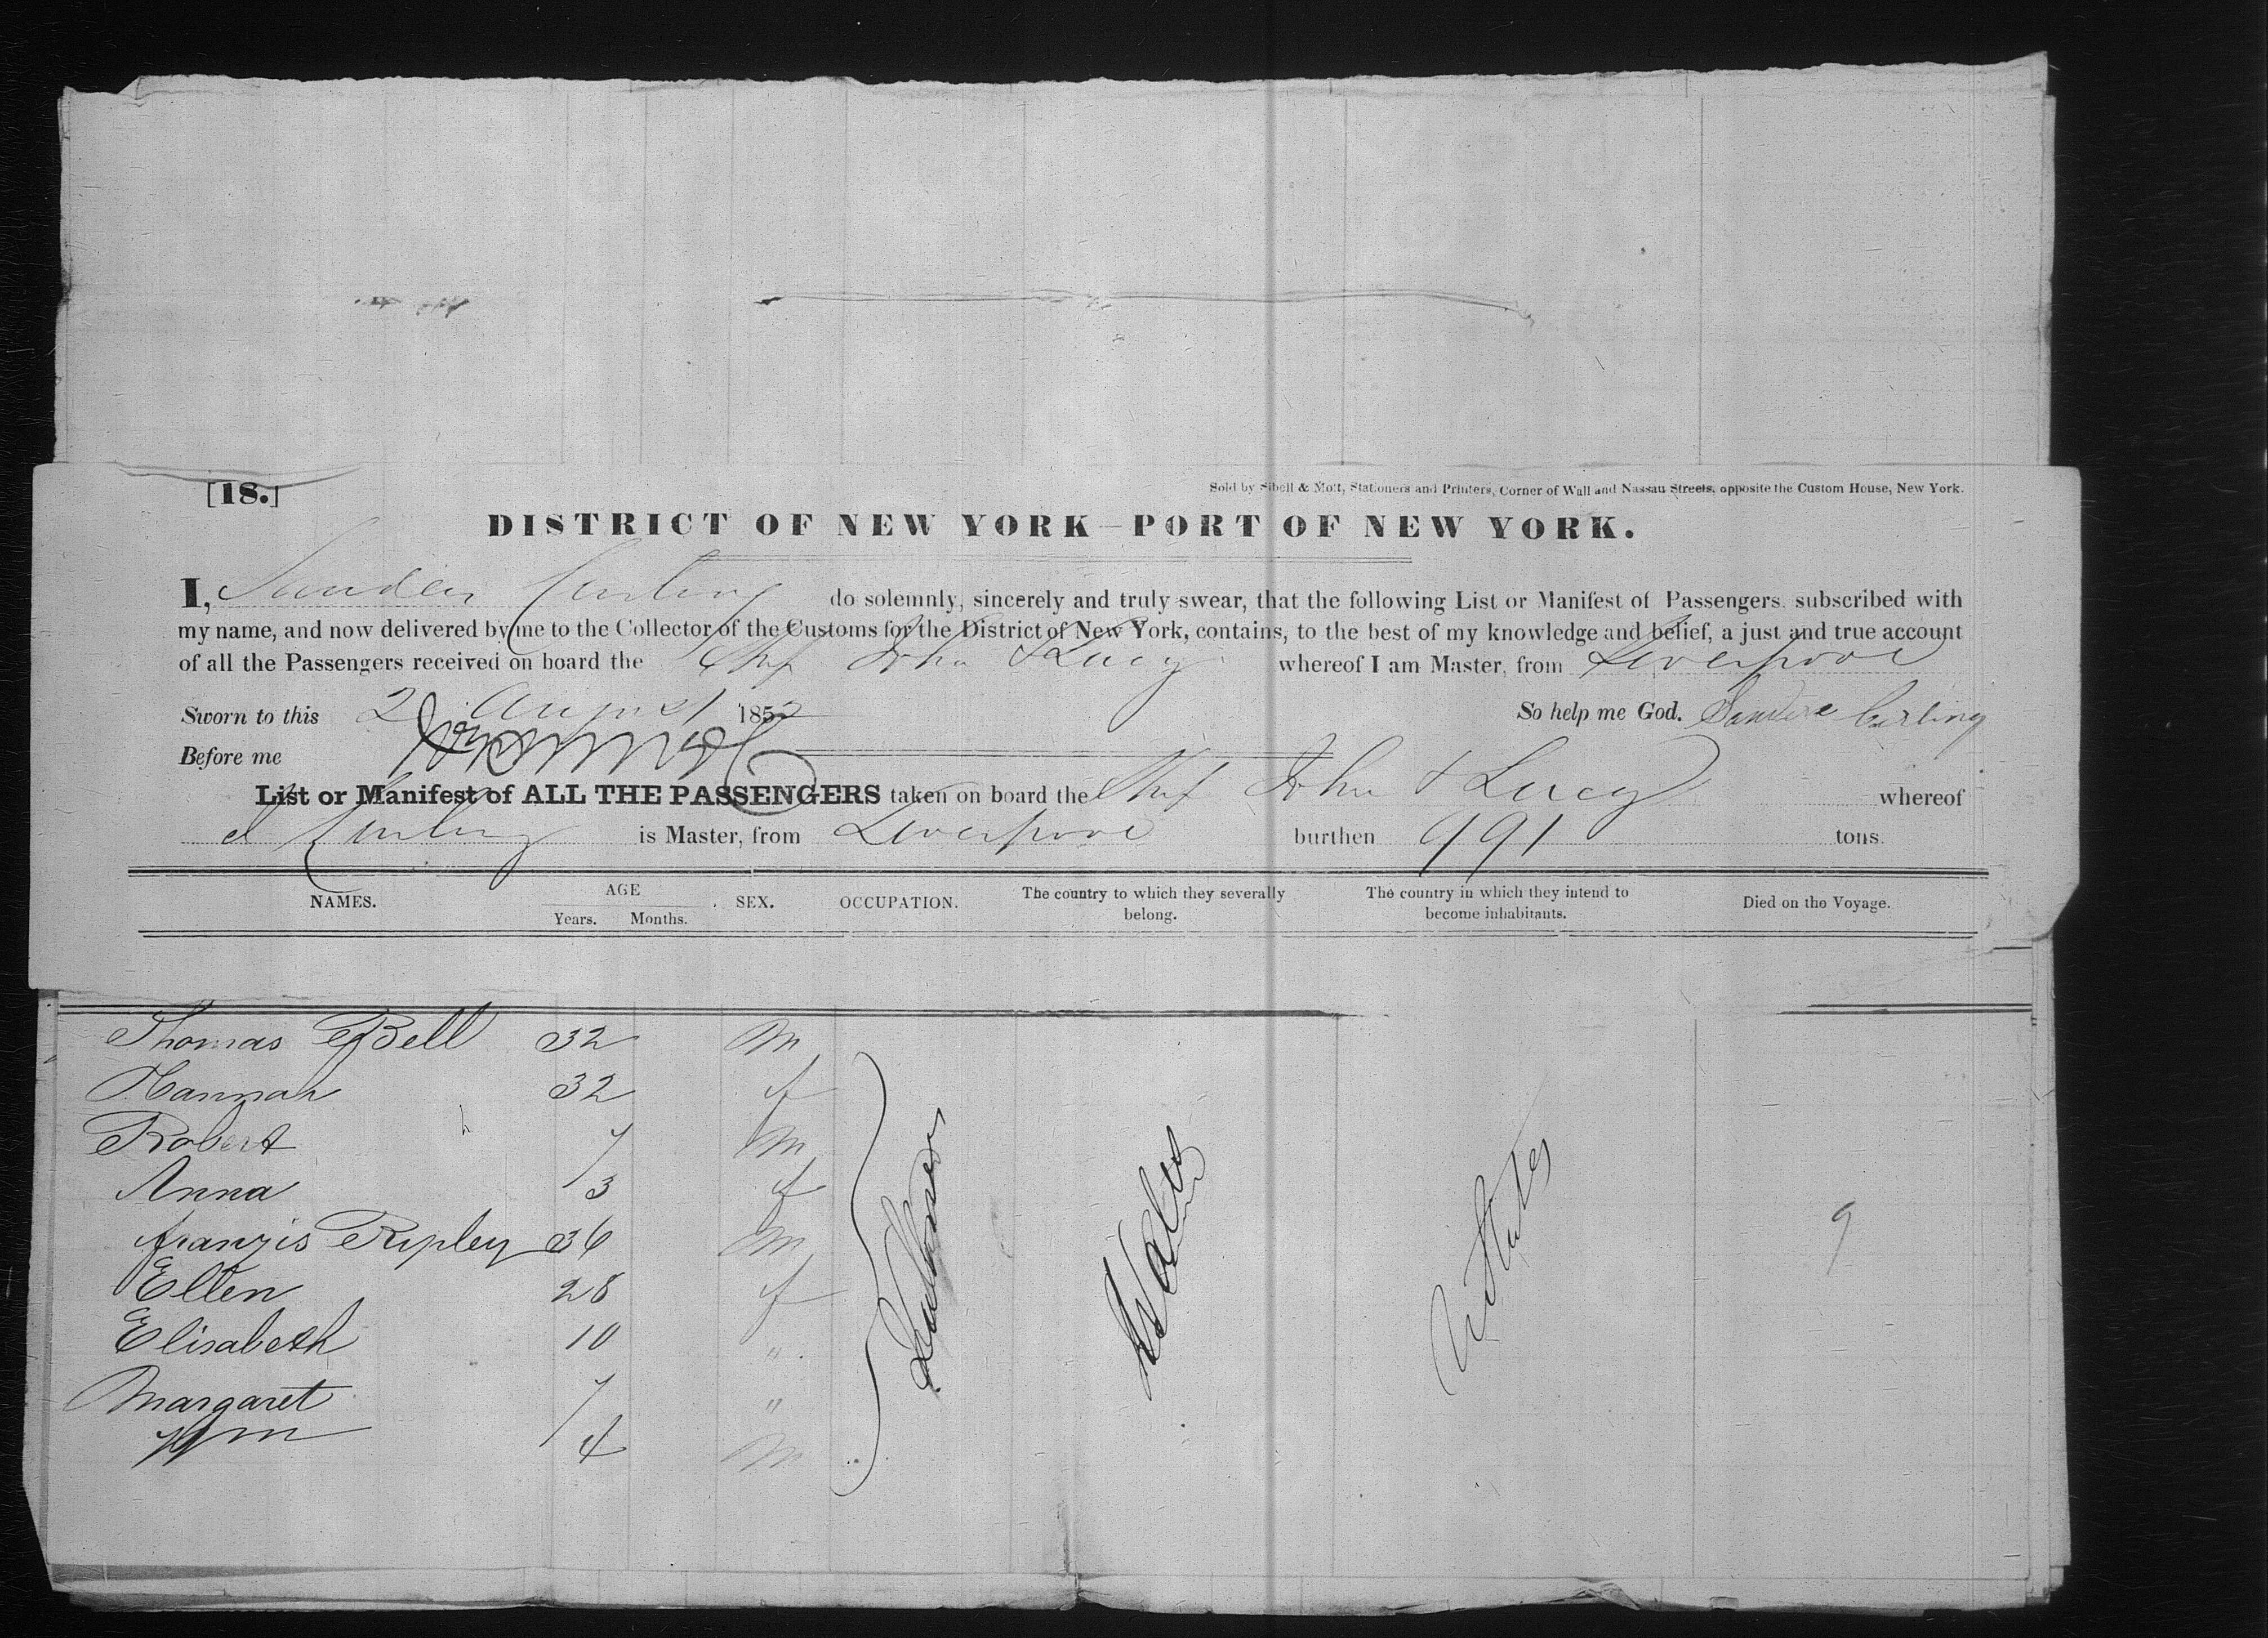 [18.]
Sold by Sibell & Mott, Stationers and Printers, Corner of Wall and Nassau Streets, opposite the Custom House, New York.
DISTRICT OF NEW YORK—PORT OF NEW YORK.
I, Sanders Curling do solemnly, sincerely and truly swear, that the following List or Manifest of Passengers, subscribed with
my name, and now delivered by me to the Collector of the Customs for the District of New York, contains, to the best of my knowledge and belief, a just and true account
of all the Passengers received on board the Ship John & Lucy whereof I am Master, from Liverpool
Sworn to this 2 August 1852 So help me God. Curling
Before me
List or Manifest of ALL THE PASSENGERS taken on board the Ship John & Lucy whereof
S Curling is Master, from Liverpool burthen 991 tons.
NAMES. AGE Years. Months. SEX. OCCUPATION. The country to which they severally belong. The country in which they intend to become inhabitants. Died on the Voyage.
Thomas Bell 32 M
Hannah 32 f
Robert 7 M
Anna 3 f
franzis Ripley 36 M
Ellen 28 f
Elisabeth 10 "
Margaret 7 "
Wm 4 M
Wales
U States
9